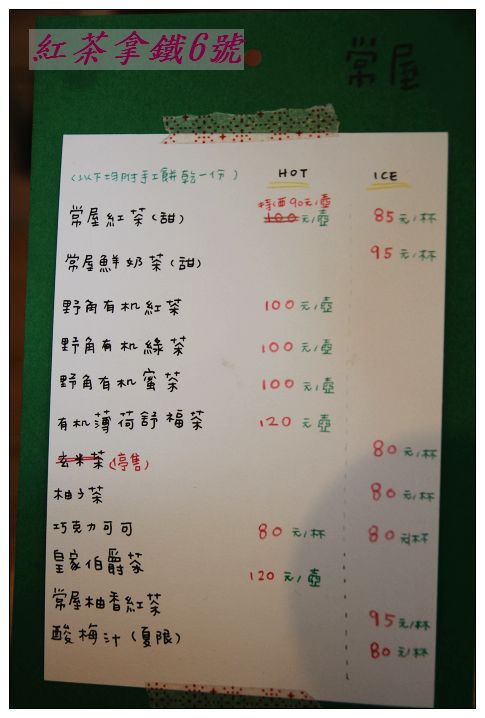 紅茶拿鐵6號
常屋
(以下均附手工餅乾一份) HOT ICE
特価90元/壺
常屋紅茶(甜) 100元/壺 85元/杯
常屋鮮奶茶(甜) 95元/杯
野角有机紅茶 100元/壺
野角有机綠茶 100元/壺
野角有机蜜茶 100元/壺
有机薄荷舒福茶 120元/壺
玄米茶(停售) 80元/杯
柚子茶 80元/杯
巧克力可可 80元/杯 80元/杯
皇家伯爵茶 120元/壺
常屋柚香紅茶 95元/杯
酸梅汁(夏限) 80元/杯